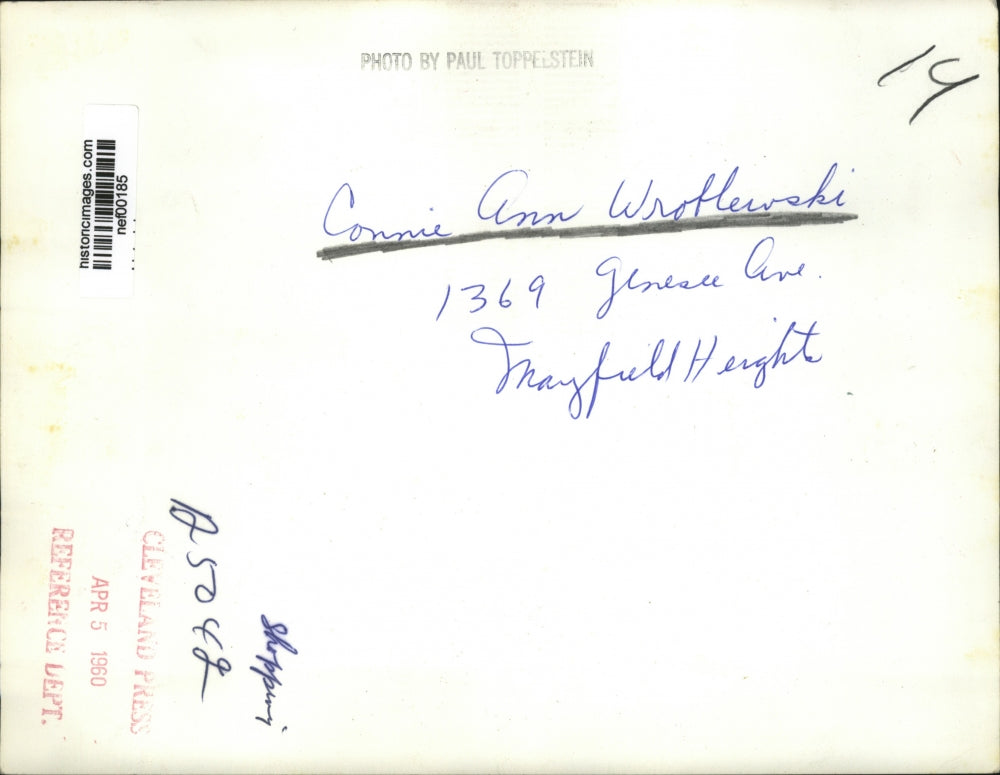 PHOTO BY PAUL TOPPELSTEIN
14
historicimages.com
nef00185
Connie Ann Wroblewski
1369 Genesee Ave.
Mayfield Heights
Shopping
CLEVELAND PRESS
APR 5 1960
REFERENCE DEPT.